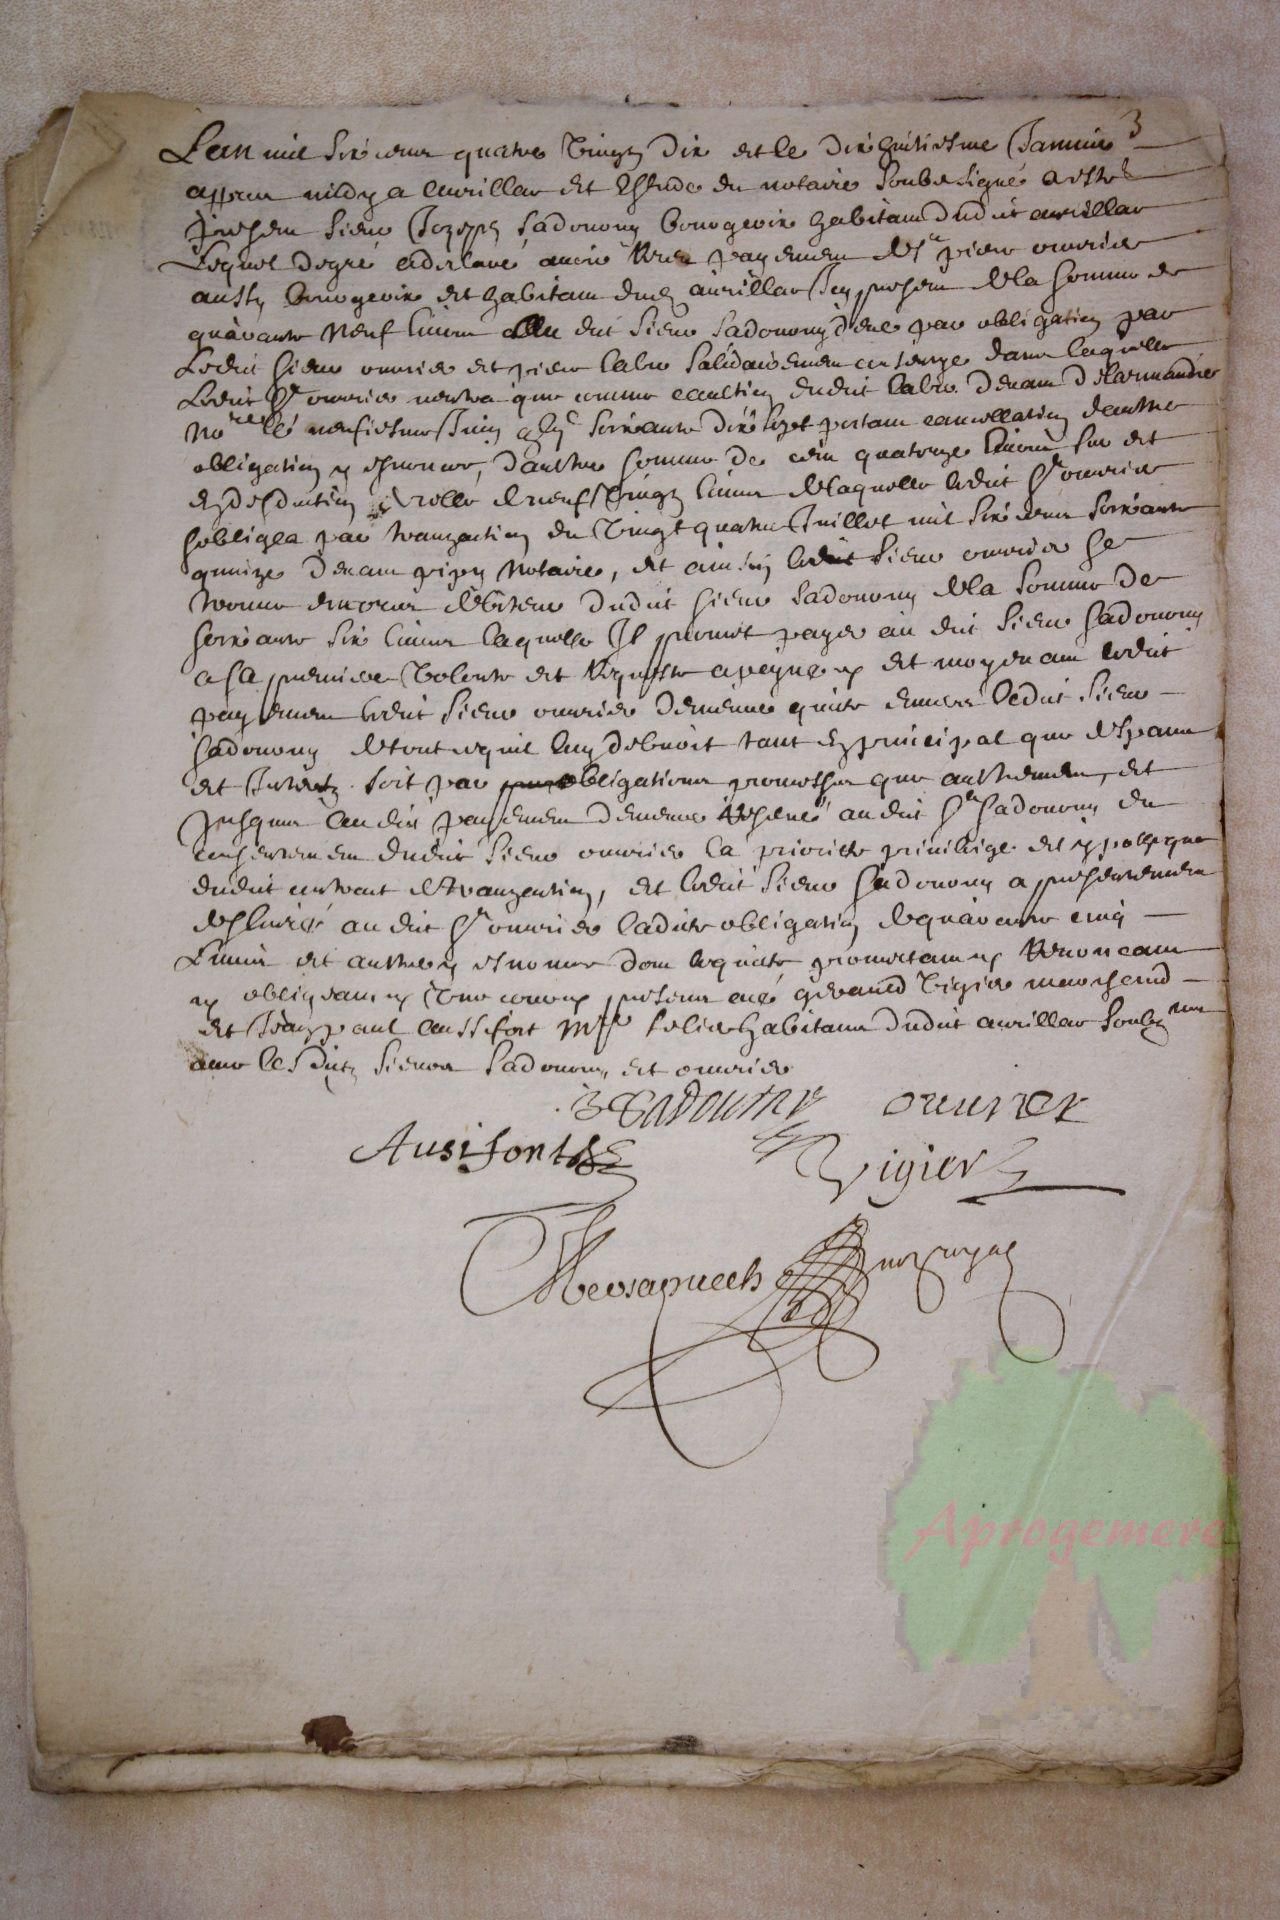 3
Lan mil six cens quatre vingtz dix et le dix huitiesme Janvier
appres midy a aurillac et Estude du notaire soubz signé a esté
present sieur Jozeph Sadourny bourgeoix habitant dudit aurillac
Lequel de gré a declaré avoir Receu payement de sr pierre ouvrier
aussy bourgeoix et habitant dud aurillac Icy present de la somme de
quarante neuf livres audit sieur Sadourny deue par obligation par
Ledit sieur ouvrier et pierre labro solidairement dans laquelle
Ledit sr ouvrier que comme caution dudit labro devant
nore le neufiesme Juin soixante dix sept portant cancellation dautre
obligation y d'autre somme de cent quatorze livres sur et
en deduction de celle de neuf vingtz livres de laquelle ledit sr ouvrier
sobligea par transaction du vingt quatre Juillet mil six cens soixante
quinze devant notaire, et ainsin ledit sieur ouvrier se
trouve encores debiteur dudit sieur Sadourny de la somme de
soixante six livres laquelle Il promet payer au dit sieur Sadourny
a sa premiere volonte et Requeste a peyne et moyenant ledit
payement ledit sieur ouvrier demeure quitte envers ledit sieur
Sadourny de tout ce quil luy debvoit tant en principal que despans
et Interetz soit par obligations promesses que autrement, et
jusques au dit payement demeure Reservé au dit sr Sadourny du
consentement dudit sieur ouvrier la priorité privilege et ypotheque
dudit contract de transaction, et ledit sieur Sadourny a presentement
deslivré au dit sr ouvrier ladite obligation de quarante cinq
Livres et autre y dont quitte promettant Renonceant
obligeant presens geraud Vigier marchand
et Jean paul aussifort Mre selier habitans dudit aurillac soubznes
avec lesdits sieurs Sadourny et ouvrier
Sadourny ouurier
Ausifort
Vigier
not royal
Aprogemere